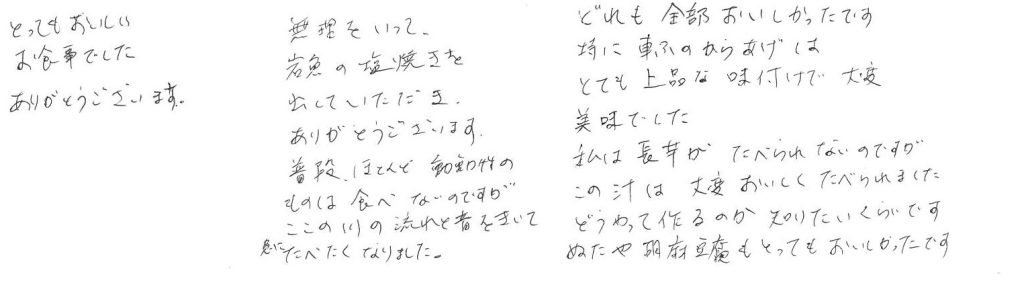 とってもおいしい
お食事でした
ありがとうございます。
無理をいって、
岩魚の塩焼きを
出していただき、
ありがとうございます。
普段、ほとんど動物性の
ものは食べないのですが
ここの川の流れと音をきいて
急にたべたくなりました。
どれも全部おいしかったです
特に車ふのからあげは
とても上品な味付けで大変
美味でした
私は長芋がたべられないのですが
この汁は大変おいしくたべられました
どうやって作るのか知りたいくらいです
ぬたや胡麻豆腐もとってもおいしかったです